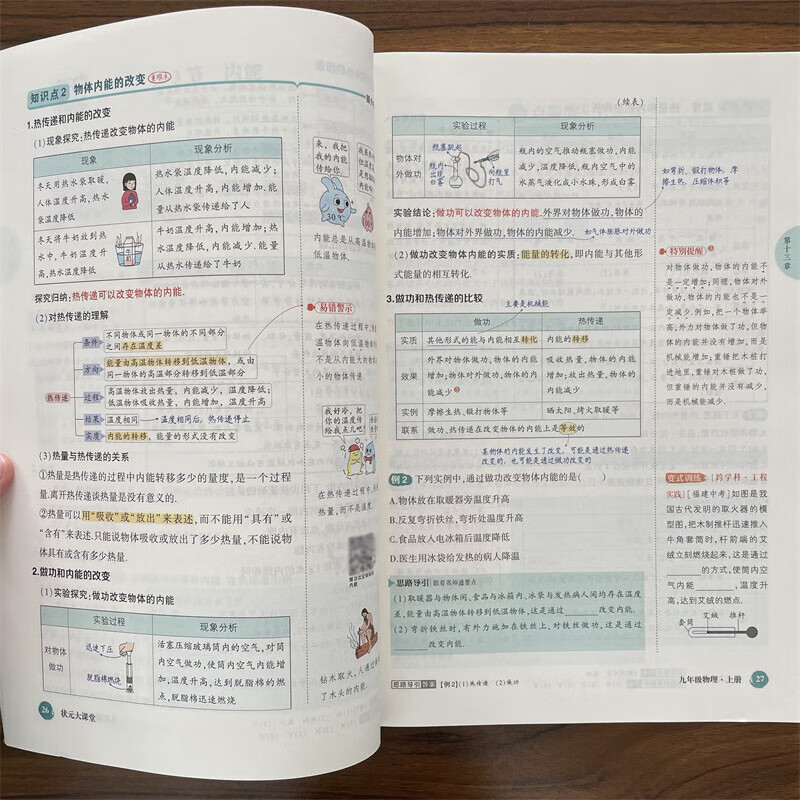 知识点2 物体内能的改变 重难点
1.热传递和内能的改变
(1)现象探究:热传递改变物体的内能
现象
现象分析
冬天用热水袋取暖,
人体温度升高,热水
袋温度降低
热水袋温度降低,内能减少;
人体温度升高,内能增加.能
量从热水袋传递给了人
冬天将牛奶放到热
水中,牛奶温度升
高,热水温度降低
牛奶温度升高,内能增加;热
水温度降低,内能减少.能量
从热水传递给了牛奶
探究归纳:热传递可以改变物体的内能.
(2)对热传递的理解
热传递
条件
不同物体或同一物体的不同部分
之间存在温度差
方向
能量由高温物体转移到低温物体,或由
同一物体的高温部分转移到低温部分
过程
高温物体放出热量,内能减少,温度降低;
低温物体吸收热量,内能增加,温度升高
结果
温度相同
温度相同后,热传递停止
实质
内能的转移,能量的形式没有改变
(3)热量与热传递的关系
①热量是热传递的过程中内能转移多少的量度,是一个过程
量,离开热传递谈热量是没有意义的.
②热量可以用“吸收”或“放出”来表述,而不能用“具有”或
“含有”来表述.只能说物体吸收或放出了多少热量,不能说物
体具有或含有多少热量.
2.做功和内能的改变
(1)实验探究:做功改变物体的内能
实验过程
现象分析
对物体
做功
迅速下压
脱脂棉燃烧
活塞压缩玻璃筒内的空气,对筒
内空气做功,使筒内空气内能增
加,温度升高,达到脱脂棉的燃
点,脱脂棉迅速燃烧
26 状元大课堂
来,我把
我的内能
传给你.
30℃
内能总是从高温
低温物体.
易错警示
在热传递过程中,
温物体向低温物体
不是从内能大的物体
小的物体传递.
我好冷,把
你的温度传
给我点儿吧!
在热传递过程中,
热量,而不是温度.
钻木取火,人通过
了木头的内能.
(续表)
实验过程
现象分析
物体对
外做功
瓶塞跳起
瓶内
出现
白雾
向瓶里
打气
瓶内的空气推动瓶塞做功,内能
减少,温度降低,瓶内空气中的
水蒸气液化成小水珠,形成白雾
如弯折、锻打物体、摩
擦生热、压缩体积等
实验结论:做功可以改变物体的内能.外界对物体做功,物体的
内能增加;物体对外界做功,物体的内能减少.
如气体膨胀对外做功
(2)做功改变物体内能的实质:能量的转化,即内能与其他形
式能量的相互转化.
3.做功和热传递的比较
主要是机械能
做功
热传递
实质
其他形式的能与内能相互转化
内能的转移
效果
外界对物体做功,物体的内能
增加;物体对外做功,物体的内
能减少
吸收热量,物体的内能
增加;放出热量,物体的
内能减少
实例
摩擦生热、锻打物体等
晒太阳、烤火取暖等
联系
做功、热传递在改变物体的内能上是等效的
某物体的内能发生了改变,可能是通过热传递
改变的,也可能是通过做功改变的
例2 下列实例中,通过做功改变物体内能的是( )
A.物体放在取暖器旁温度升高
B.反复弯折铁丝,弯折处温度升高
C.食品放入电冰箱后温度降低
D.医生用冰袋给发热的病人降温
思路导引 跟着名师通要点
(1)取暖器与物体间、食品与冰箱内、冰袋与发热病人间均存在温度
差,能量由高温物体转移到低温物体,这是通过______改变内能.
(2)弯折铁丝时,有外力施加在铁丝上,对铁丝做功,这是通过
______改变内能.
思路导引答案 【例2】(1)热传递 (2)做功
九年级物理·上册 27
第十三章
特别提醒
对物体做功,物体的内能不
是一定增加;同理,物体对外
做功,物体的内能也不是一
定减少.例如,把一个物体举
高,外力对物体做了功,但物
体的内能并没有增加,而是
机械能增加;重锤把木桩打
进地里,重锤对木桩做了功,
但重锤的内能并没有减少,
而是机械能减少.
变式训练 [跨学科·工程
实践] [福建中考]如图是我
国古代发明的取火器的模
型图,把木制推杆迅速推入
牛角套筒时,杆前端的艾
绒立刻燃烧起来,这是通过
______的方式,使筒内空
气内能______,温度升
高,达到艾绒的燃点.
套筒 艾绒 推杆